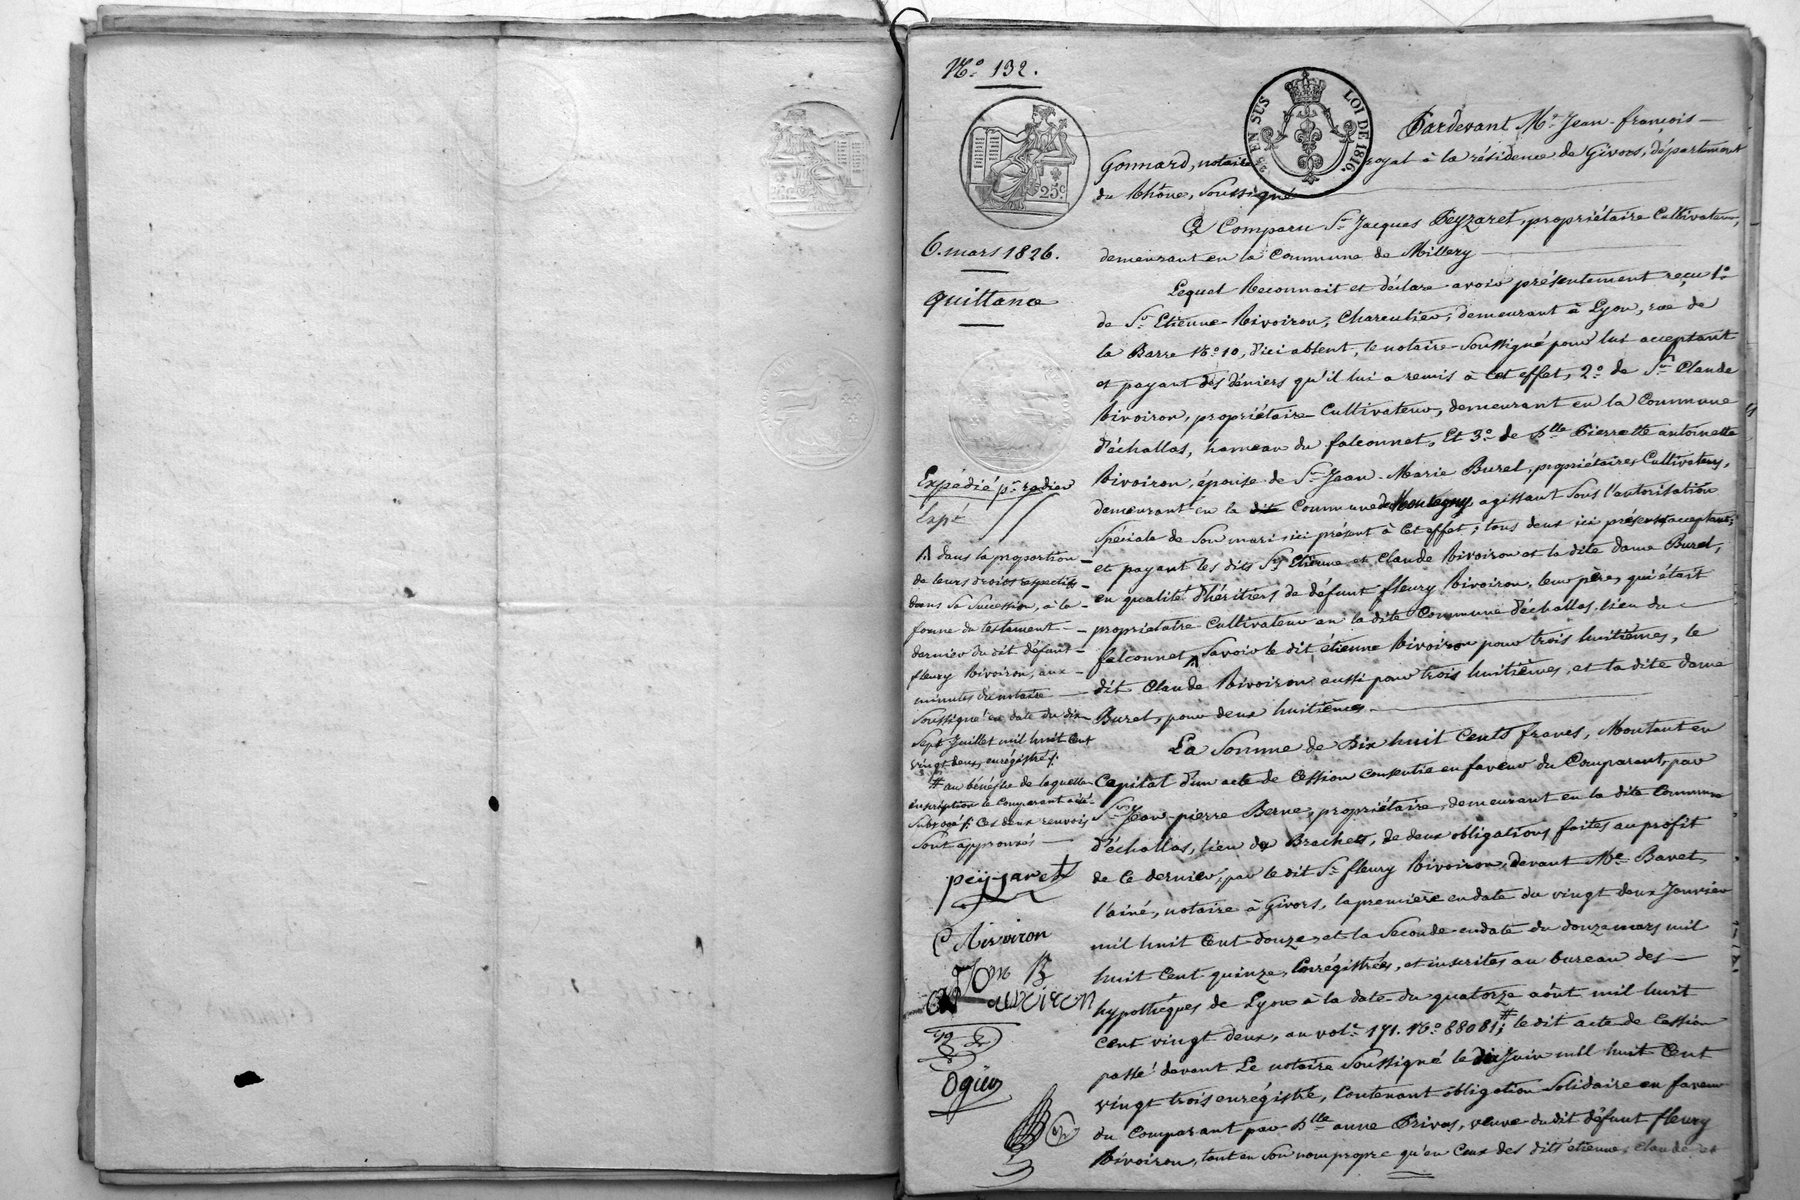 N.° 132.
25 c.
25 EN SUS LOI DE 1816.
6. mars 1826.
quittance
Expédié pr.
Expé
Λ dans la proportion
de leurs droits respectifs
dans sa Succession, à la
forme du testament
dernier du dit défunt
fleury Rivoiron, aux
minutes du notaire
Soussigné en date du dix
Sept Juillet mil huit Cent
vingt deux, enrégistré ;
# au bénéfice de laquelle
inscription le Comparant a été
Subrogé ; Ces deux renvois
Sont approuvés
peyzaret
C Rivoiron
Ogier
Pardevant Me. Jean-françois
Gonnard, notaire royal à la résidence de Givors, département
du Rhône, Soussigné
A Comparu Sr. Jacques Peyzaret, propriétaire Cultivateur,
demeurant en la Commune de Millery
Lequel Reconnait et déclare avoir présentement reçu 1°
de Sr. Etienne Rivoiron, Charcutier, demeurant à Lyon, rue de
la Barre N.° 10, d'ici absent, le notaire Soussigné pour lui acceptant
et payant des déniers qu'il lui a remis à cet effet, 2.° de Sr. Claude
Rivoiron, propriétaire Cultivateur, demeurant en la Commune
d'échallas, hameau du falconnet, Et 3.° de Dlle Pierrette antoinette
Rivoiron, épouse de Sr. Jean-Marie Burel, propriétaires Cultivateurs,
demeurant en la dite Commune de Montagny, agissant Sous l'autorisation
Spéciale de Son mari ici présent à Cet effet ; tous deux ici présents acceptant,
et payant les dits Srs. Etienne et Claude Rivoiron et la dite dame Burel,
en qualité d'héritiers de défunt fleury Rivoiron, leur père, qui était
propriétaire Cultivateur en la dite Commune d'échallas, lieu du
falconnet Λ Savoir le dit étienne Rivoiron pour trois huitièmes, le
dit Claude Rivoiron aussi pour trois huitièmes, et la dite dame
Burel, pour deux huitièmes.
La Somme de Dix huit Cents francs, Montant en
Capital d'un acte de Cession Consentie en faveur du Comparant, par
Sr. Jean-pierre Berne, propriétaire, demeurant en la dite Commune
d'échallas, lieu de Brachet, de deux obligations faites au profit
de Ce dernier, par le dit Sr. fleury Rivoiron, devant Me. Bavet
l'ainé, notaire à Givors, la première en date du vingt deux Janvier
mil huit Cent douze, et la Seconde en date du douze mars mil
huit Cent quinze, Enrégistrées, et inscrites au bureau des
hypothèques de Lyon à la date du quatorze août mil huit
Cent vingt deux, au vol.e 171. N.° 88081 ; # le dit acte de Cession
passé devant Le notaire Soussigné le dix Juin mil huit Cent
vingt trois enrégistré, Contenant obligation Solidaire en faveur
du Comparant par Dlle anne Privas, veuve du dit défunt fleury
Rivoiron, tant en Son nom propre qu'en Ceux des dits étienne, Claude et